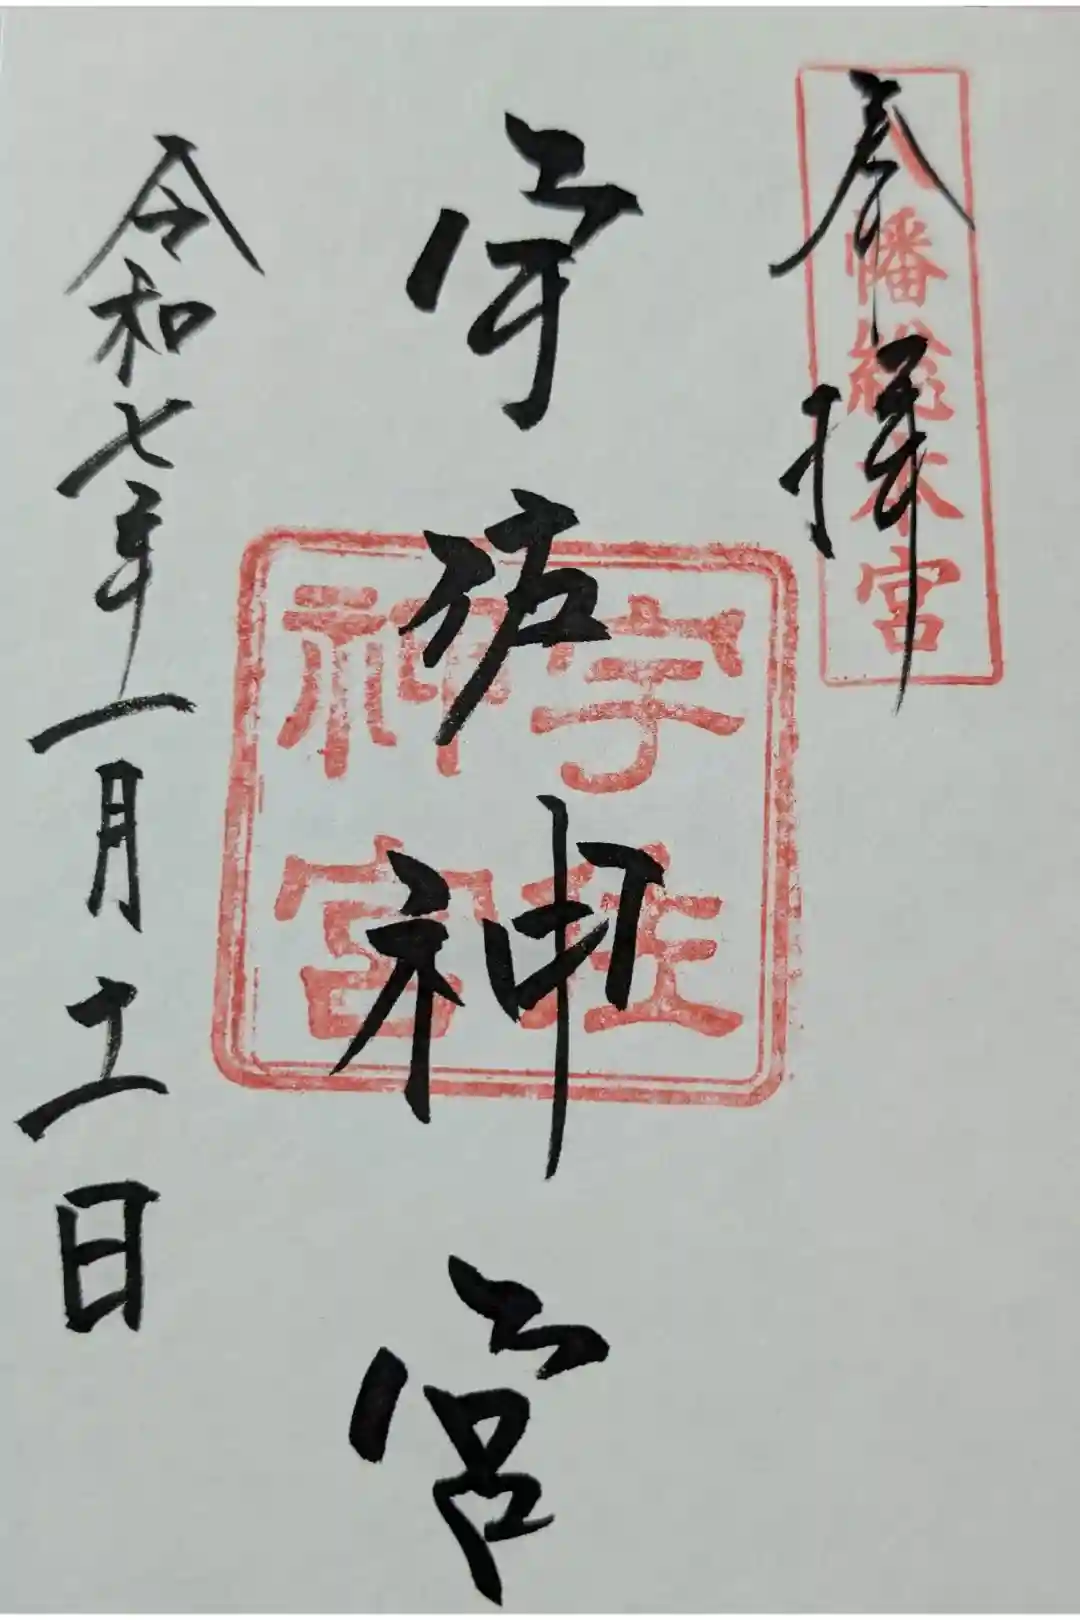 奉拝
八幡総本宮
宇佐神宮
宇佐神宮
令和七年一月十一日